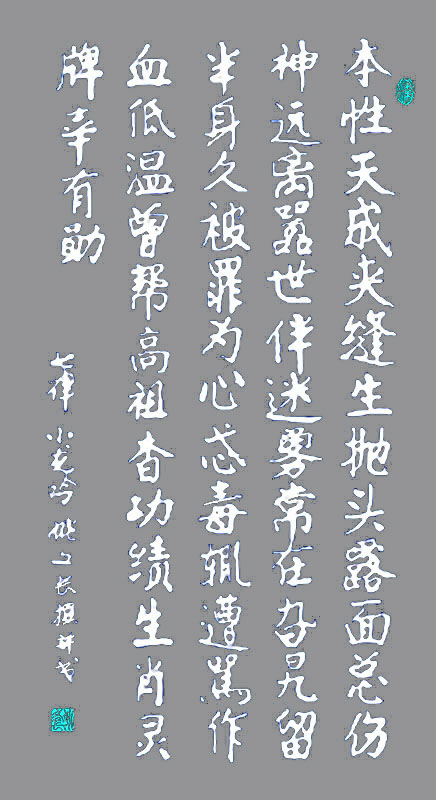 本性天成夹缝生抛头露面总伤
神远离嚣世伴迷雾常在旮旯留
半身久被罪为心忒毒辄遭骂作
血低温曾帮高祖查功绩生肖灵
牌幸有勋
七律 小龙吟 姚 长撰并书